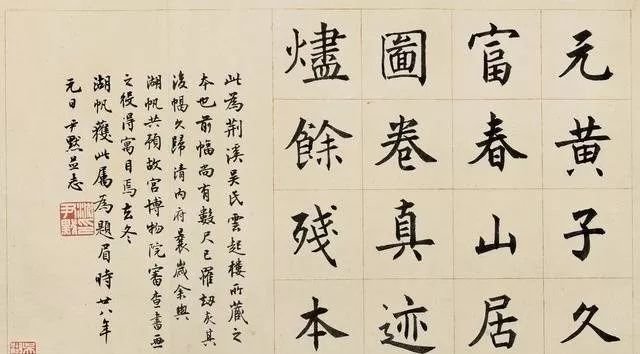 元黄子久
富春山居
圖卷真迹
燼餘殘本
此為荆溪吴氏雲起樓所藏之
本也前幅尚有數尺已罹劫灰其
後幅久歸清内府曩歲余與
湖帆共預故宫博物院審查書畫
之役得寓目焉去冬
湖帆獲此属為題眉時廿八年
元日尹默並志